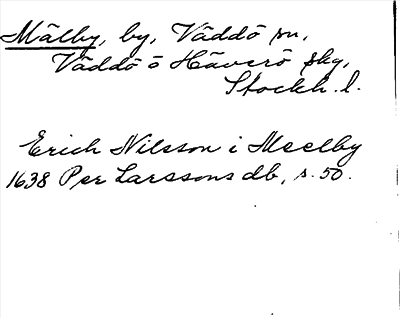 Mälby, by, Väddö sn,
Väddö o Häverö skg,
Stockh. l.
Erich Nilsson i Meelby
1638 Per Larssons db, s. 50.